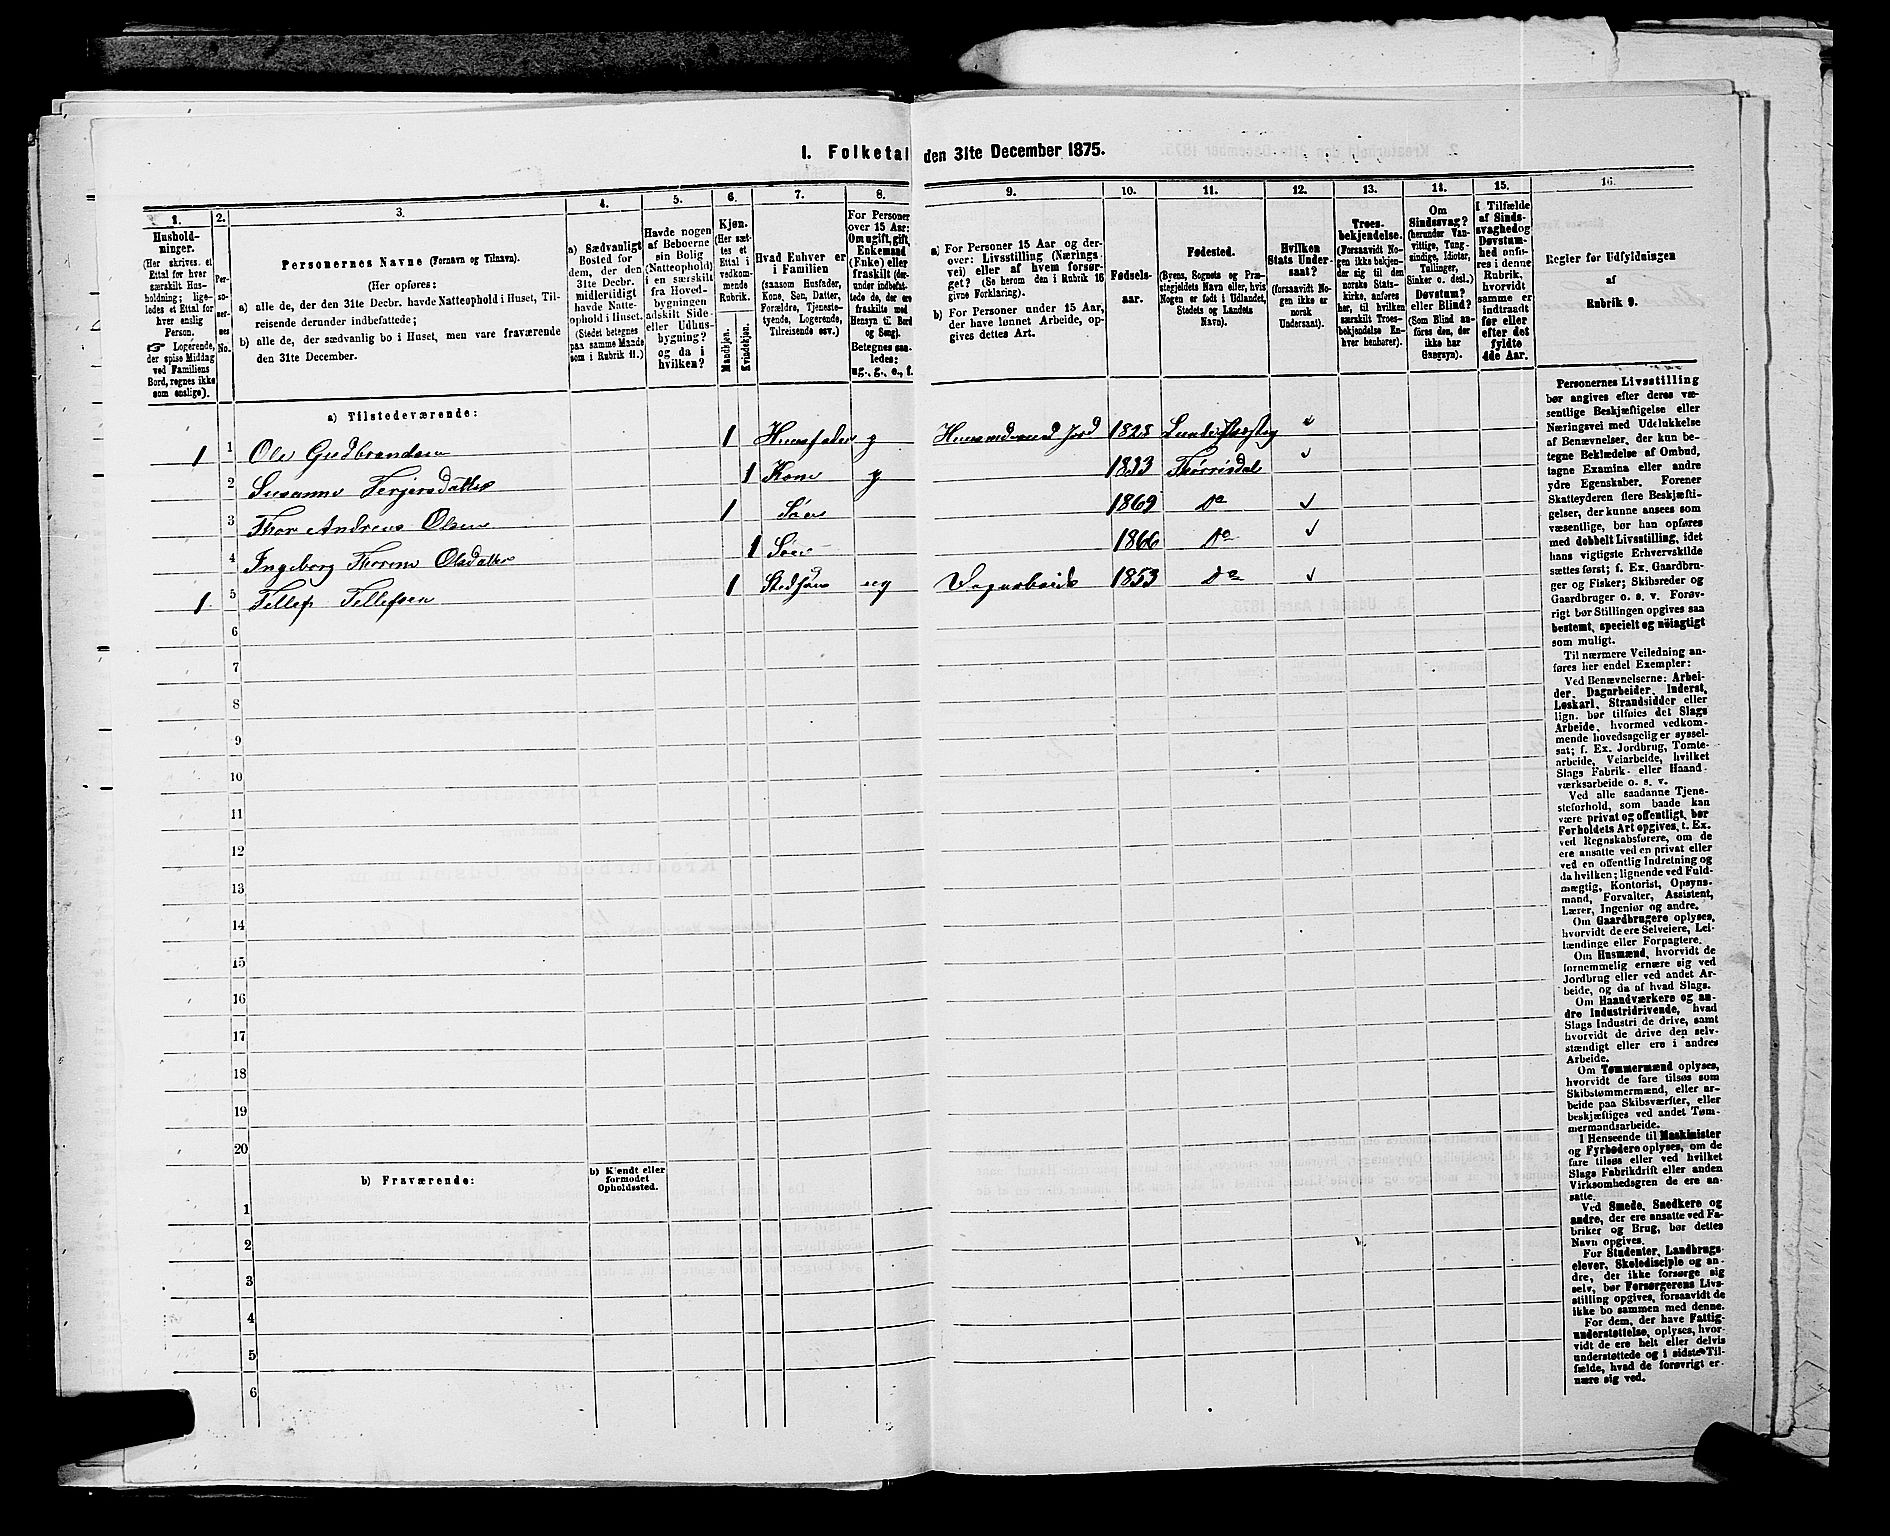 I. Folketal den 31te December 1875.
1. 2. 3. 4. 5. 6. 7. 8. 9. 10. 11. 12. 13. 14. 15. 16.
Hushold-
ninger.
(Her skrives et
Ettal for hver
særskilt Hus-
holdning; lige-
ledes et Ettal for
hver enslig
Person.
☞ Logerende,
der spise Middag
ved Familiens
Bord, regnes ikke
som enslige).
Per-
so-
ner-
nes
No.
Personernes Navne (Fornavn og Tilnavn).
(Her opføres:
a) alle de, der den 31te Decbr. havde Natteophold i Huset, Til-
reisende derunder indbefattede;
b) alle de, der sædvanlig bo i Huset, men vare fraværende
den 31te December.
a) Sædvanligt
Bosted for
dem, der den
31te Decbr.
midlertidigt
havde Natte-
ophold i Huset.
(Stedet betegnes
paa samme Maade
som i Rubrik 11.)
Havde nogen
af Beboerne
sin Bolig
(Natteophold)
i en særskilt
fra Hoved-
bygningen
adskilt Side-
eller Udhus-
bygning?
og da i
hvilken?
Kjøn.
(Her sæt-
tes et
Ettal i
vedkom-
mende
Rubrik.
Mandkjøn.
Kvindekjøn.
Hvad Enhver er
i Familien
(saasom Husfader,
Kone, Søn, Datter,
Forældre, Tjeneste-
tyende, Logerende,
Tilreisende osv.)
For Personer
over 15 Aar:
Om ugift, gift,
Enkemand
(Enke) eller
fraskilt (der-
under indbefat-
tede de, der ere
fraskilte med
Hensyn til Bord
og Seng).
Betegnes saa-
ledes:
ug., g., e., f.
a) For Personer 15 Aar og der-
over: Livsstilling (Nærings-
vei) eller af hvem forsør-
get? (Se herom den i Rubrik 16
givne Forklaring).
b) For Personer under 15 Aar,
der have lønnet Arbeide, op-
gives dettes Art.
Fødsels-
aar.
Fødested.
(Byens, Sognets og Præ-
stegjeldets Navn, eller, hvis
Nogen er født i Udlandet,
Stedets og Landets
Navn).
Hvilken
Stats Under-
saat?
(forsaavidt No-
gen ikke er
norsk
Undersaat).
Troes-
bekjendelse.
(Forsaavidt No-
gen ikke bekjen-
der sig til den
norske Stats-
kirke, anføres
her, til hvilken
særskilt Troes-
bekjendelse En-
hver henhører).
Om
Sindssvag?
(herunder Van-
vittige, Tung-
sindige, Idioter,
Tullinger,
Sinker o. desl.)
Døvstum?
eller Blind?
(Som Blind an-
føres den, der
ikke har
Gangsyn).
I Tilfælde
af Sinds-
svaghed og
Døvstum-
hed anfø-
res i denne
Rubrik,
hvorvidt
samme er
indtraadt
før eller
efter det
fyldte
4de Aar.
Regler for Udfyldningen
af
Rubrik 9.
a) Tilstedeværende:
1 1 Ole Gudbrandsen 1 Huusfader g Huusmand med Jord 1828
2 Susanne Terjersdatter 1 Kone g 1833
3 Thor Andreas Olsen 1 Søn 1869 Do
4 Ingeborg Thorine Olsdatter 1 1866 Do
1 5 Tellef Tellefsen 1 Stedsøn ug Dagarbeide 1853 Do
6
7
8
9
10
11
12
13
14
15
16
17
18
19
20
b) Fraværende:
b) Kjendt eller
formodet
Opholdssted.
1
2
3
4
5
6
Personernes Livsstilling
bør angives efter deres væ-
sentlige Beskjæftigelse eller
Næringsvei med Udelukkelse
af Benævnelser, der kun be-
tegne Beklædelse af Ombud,
tagne Examina eller andre
ydre Egenskaber. Forener
Skatteyderen flere Beskjæfti-
gelser, der kunne ansees som
væsentlige, bør han opføres
med dobbelt Livsstilling, idet
hans vigtigste Erhvervskilde
sættes først; f. Ex. Gaardbru-
ger og Fisker; Skibsreder og
Gaardbruger o. s. v. Forøv-
rigt bør Stillingen opgives saa
bestemt, specielt og nöiagtigt
som muligt.
Til nærmere Veiledning an-
føres her endel Exempler:
Ved Benævnelserne: Arbei-
der, Dagarbeider, Inderst,
Løskarl, Strandsidder eller
lign. bør tilføies det Slags
Arbeide, hvormed vedkom-
mende hovedsagelig er syssel-
sat; f. Ex. Jordbrug, Tomte-
arbeide, Veiarbeide, hvilket
Slags Fabrik- eller Haand-
værksarbeide o. s. v.
Ved alle saadanne Tjene-
steforhold, som baade kan
være privat og offentligt, bør
Forholdets Art opgives, t. Ex.
ved Regnskabsførere, om de
ere ansatte ved en privat eller
ved en offentlig Indretning og
da hvilken; lignende ved Fuld-
mægtig, Kontorist, Opsyns-
mand, Forvalter, Assistent,
Lærer, Ingeniør og andre.
Om Gaardbrugere oplyses,
hvorvidt de ere Selveiere, Lei-
lændinge eller Forpagtere.
Om Husmænd, hvorvidt de
fornemmelig ernære sig ved
Jordbrug eller ved andet Ar-
beide, og da af hvad Slags.
Om Haandværkere og an-
dre Industridrivende, hvad
Slags Industri de drive, samt
hvorvidt de drive den selv-
stændigt eller ere i andres
Arbeide.
Om Tømmermænd oplyses,
hvorvidt de fare tilsøs som
Skibstømmermænd, eller ar-
beide paa Skibsværfter, eller
beskjæftiges ved andet Tøm-
mermandsarbeide.
I Henseende til Maskinister
og Fyrbødere oplyses, om de
fare tilsøs eller ved hvilket
Slags Fabrikdrift eller anden
Virksomhedsgren de ere an-
satte.
Ved Smede, Snedkere og
andre, der ere ansatte ved Fa-
briker og Brug, bør dettes
Navn opgives.
For Studenter, Landbrugs-
elever, Skoledisciple og an-
dre, der ikke forsørge sig
selv, bør Forsørgerens Livs-
stilling opgives, forsaavidt de
ikke bo sammen med denne.
For dem, der have Fattig-
understøttelse, oplyses, hvor-
vidt de ere helt eller delvis
understøttede og i sidste Til-
fælde, hvad de forøvrigt er-
nære sig ved.